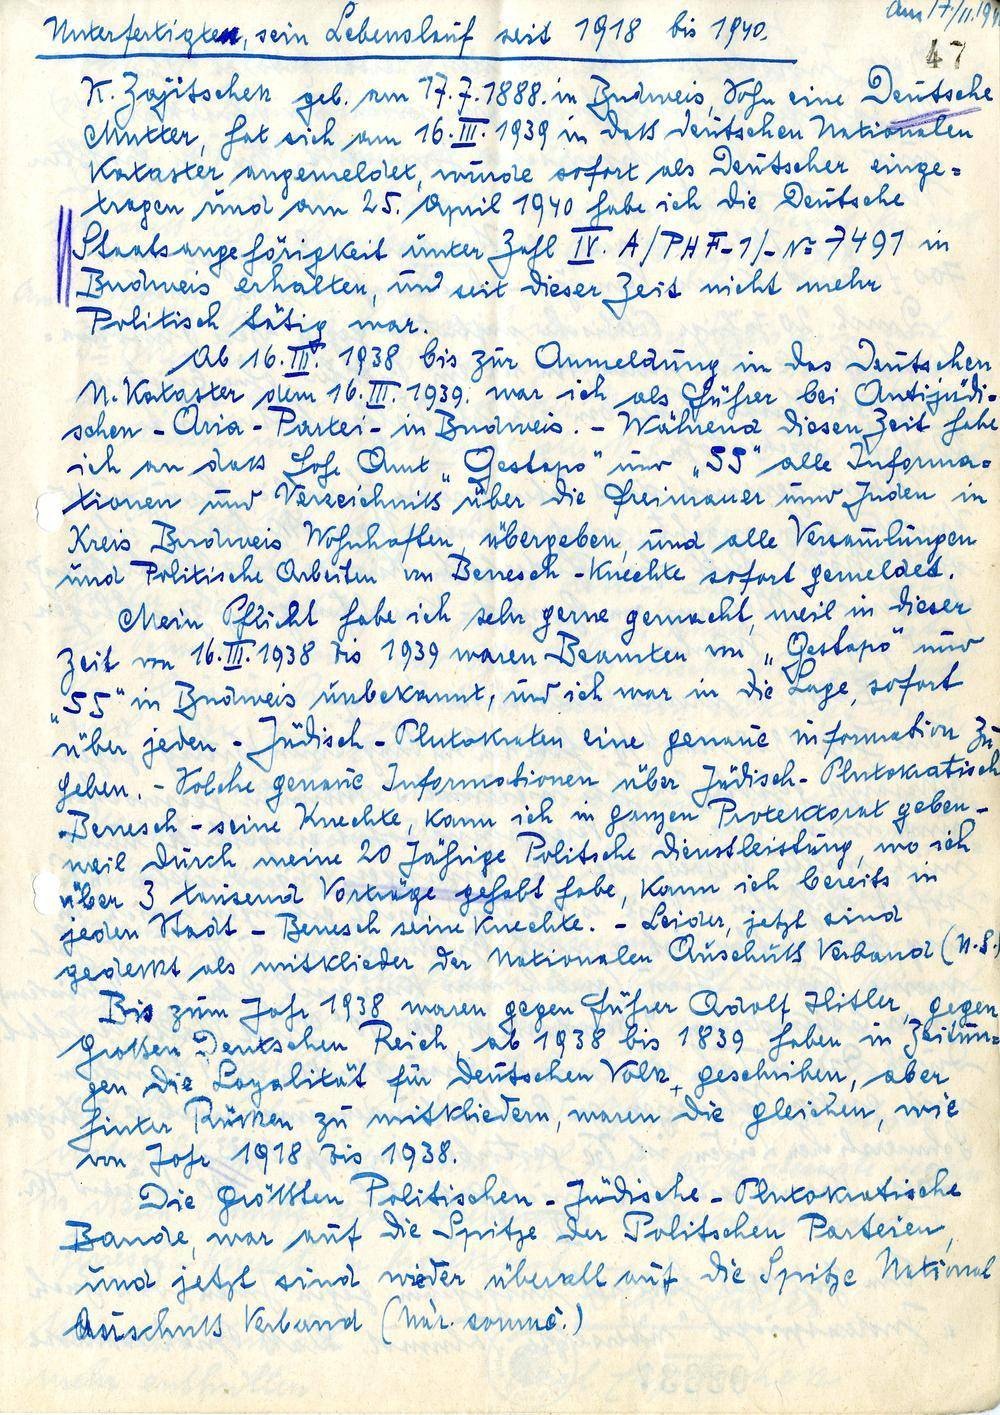 am 17/II.194
47
Unterfertigten, sein Lebenslauf seit 1918 bis 1940.
K. Zajitschek geb. am 17.7.1888. in Budweis, Sohn eine Deutsche
Mutter, hat sich am 16.III.1939 in dass deutschen Nationalen
Kataster angemeldet, wurde sofort als Deutscher einge=
tragen und am 25. April 1940 habe ich die Deutsche
Staatsangehörigkeit unter Zahl IV. A/PHF-1/- No 7491 in
Budweis erhalten, und seit dieser Zeit nicht mehr
Politisch tätig war.
Ab 16.III. 1938 bis zur Anmeldung in das Deutschen
N. Kataster dem 16.III.1939. war ich als Führer bei Antijüdi-
schen - Aria - Partei - in Budweis. - Während diesen Zeit habe
ich an dass hohe Amt „Gestapo" und „SS" alle Informa=
tionen und Verzeichniss über die Freimauer und Juden in
Kreis Budweis Wohnhaften, übergeben, und alle Versamlungen
und Politische Arbeiten von Benesch - Knechte sofort gemeldet.
Mein Pflicht habe ich sehr gerne gemacht, weil in dieser
Zeit von 16.III.1938 bis 1939 waren Beamten von „Gestapo" und
„SS" in Budweis unbekannt, und ich war in die Lage, sofort
über jeden - Jüdisch - Plutokraten eine genaue information zu
geben. - Solche genaue Informationen über Jüdisch - Plutokratisch
Benesch - seine Knechte, kann ich in ganzen Protektorat geben -
weil durch meine 20 Jährige Politsche dienstleistung, wo ich
über 3 tausend Vorträge gehabt habe, kann ich bereits in
jeden Stadt - Benesch seine Knechte. - Leider, jetzt sind
gedekt als mitklieder der Nationalen Auschuss Verband (N.S.)
Bis zum Jahr 1938 waren gegen Führer Adolf Hitler, gegen
großen Deutschen Reich, ab 1938 bis 1839 haben in Zeitun=
gen die Loyalität für deutschen Volk, geschriben, aber
hinter Rücken zu mitkliedern, waren die gleichen, wie
von Jahr 1918 bis 1938.
Die größten Politischen - Jüdische - Plutokratische
Bande, war auf die Spitze der Politschen Parteien,
und jetzt sind wieder überall auf die Spitze National
Auschuss Verband (Nár. souruč.)